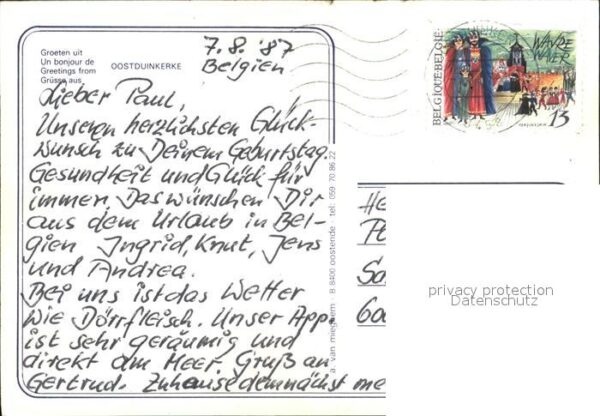 Groeten uit
Un bonjour de
Greetings from
Grüsse aus
OOSTDUINKERKE
7.8.'87
Belgien
Lieber Paul,
Unseren herzlichsten Glück-
wunsch zu Deinem Geburtstag.
Gesundheit und Glück für
immer. Das wünschen Dir
aus dem Urlaub in Bel-
gien Ingrid, Knut, Jens
und Andrea.
Bei uns ist das Wetter
wie Dörrfleisch. Unser App.
ist sehr geräumig und
direkt am Meer. Gruß an
Gertrud. Zuhause demnächst me
a. van mieghem 8 8400 oostende - tel: 059 70 86 22
BELGIQUE-BELGIË
WAVRE
WAVER
13
He
Sa
privacy protection
Datenschutz